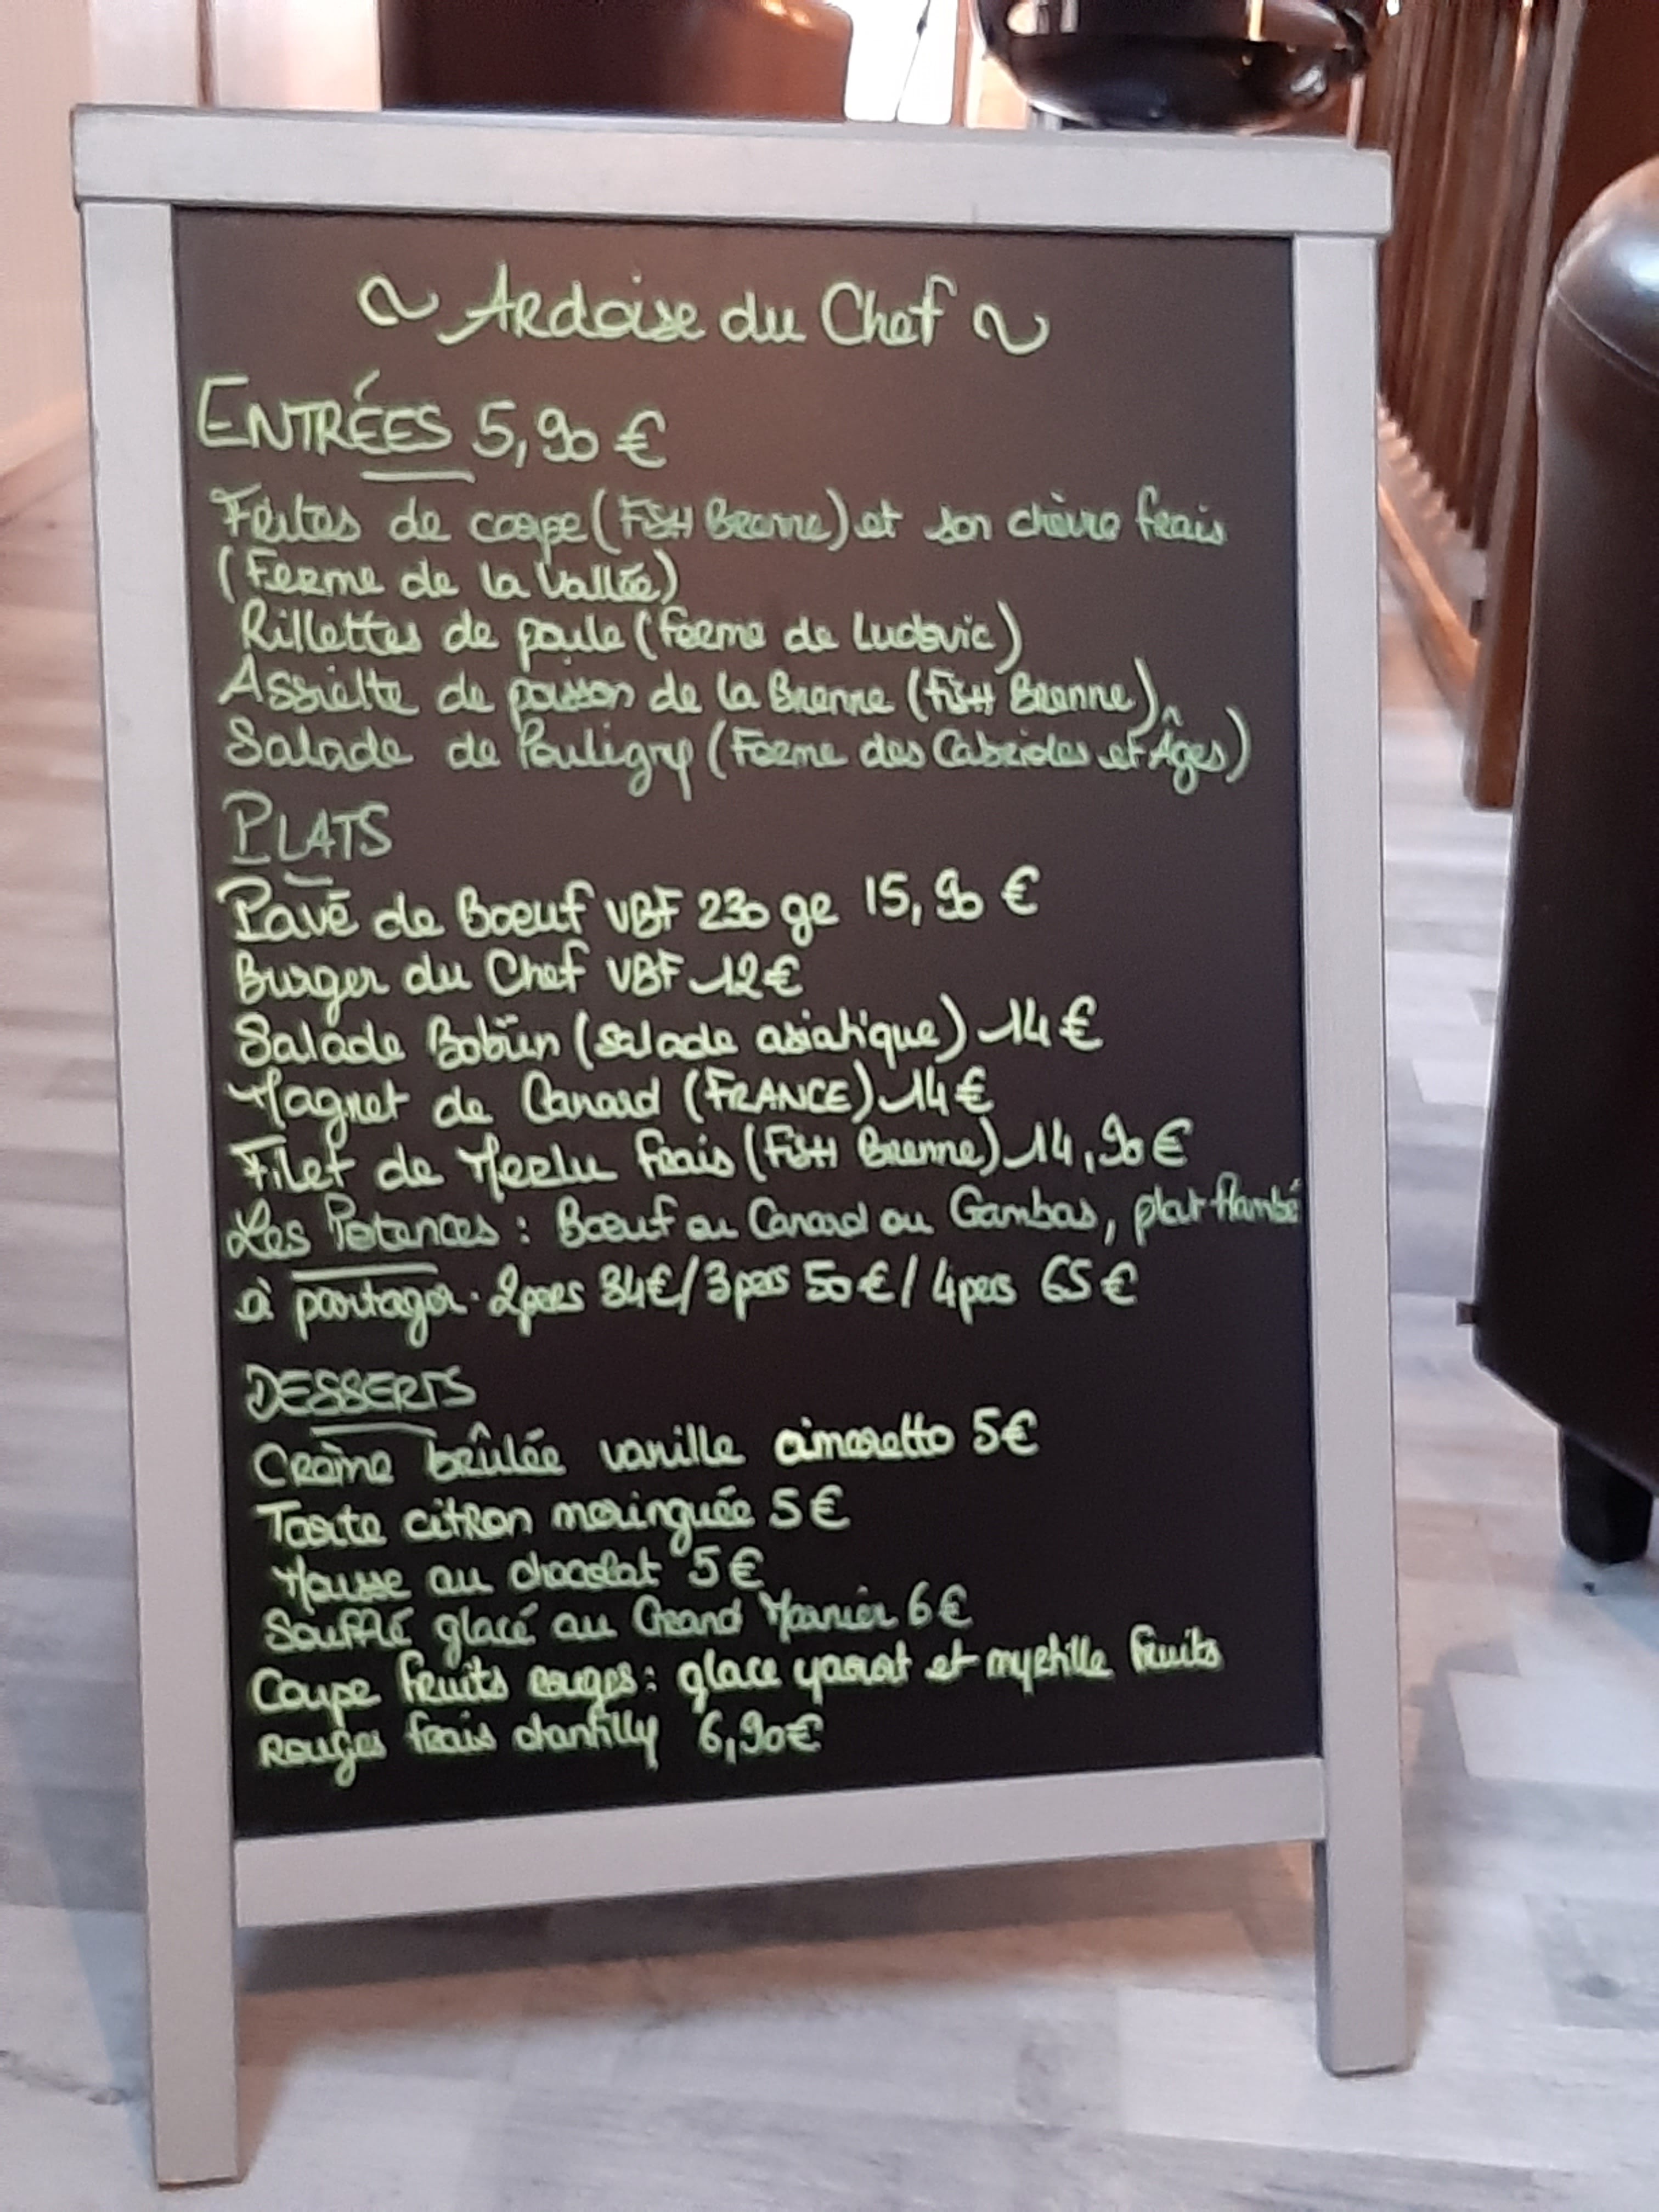 ~ Ardoise du Chef ~
ENTRÉES 5,90 €
Frites de carpe (FISH Brenne) et son chèvre frais
(Ferme de la Vallée)
Rillettes de poule (ferme de Ludovic)
Assiette de poisson de la Brenne (FISH Brenne)
Salade de Pouligny (Ferme des Cabrioles et Âges)
PLATS
Pavé de Boeuf VBF 230 gr 15,90 €
Burger du Chef VBF 12€
Salade Bobün (salade asiatique) 14€
Magret de Canard (FRANCE) 14€
Filet de Merlu frais (FISH Brenne) 14,90€
Les Potences : Boeuf ou Canard ou Gambas, plat flambé
à partager. 2pers 34€/3pers 50€/4pers 65€
DESSERTS
Crème brûlée vanille amaretto 5€
Tarte citron meringuée 5€
Mousse au chocolat 5€
Soufflé glacé au Grand Marnier 6€
Coupe fruits rouges : glace yaourt et myrtille fruits
rouges frais chantilly 6,90€